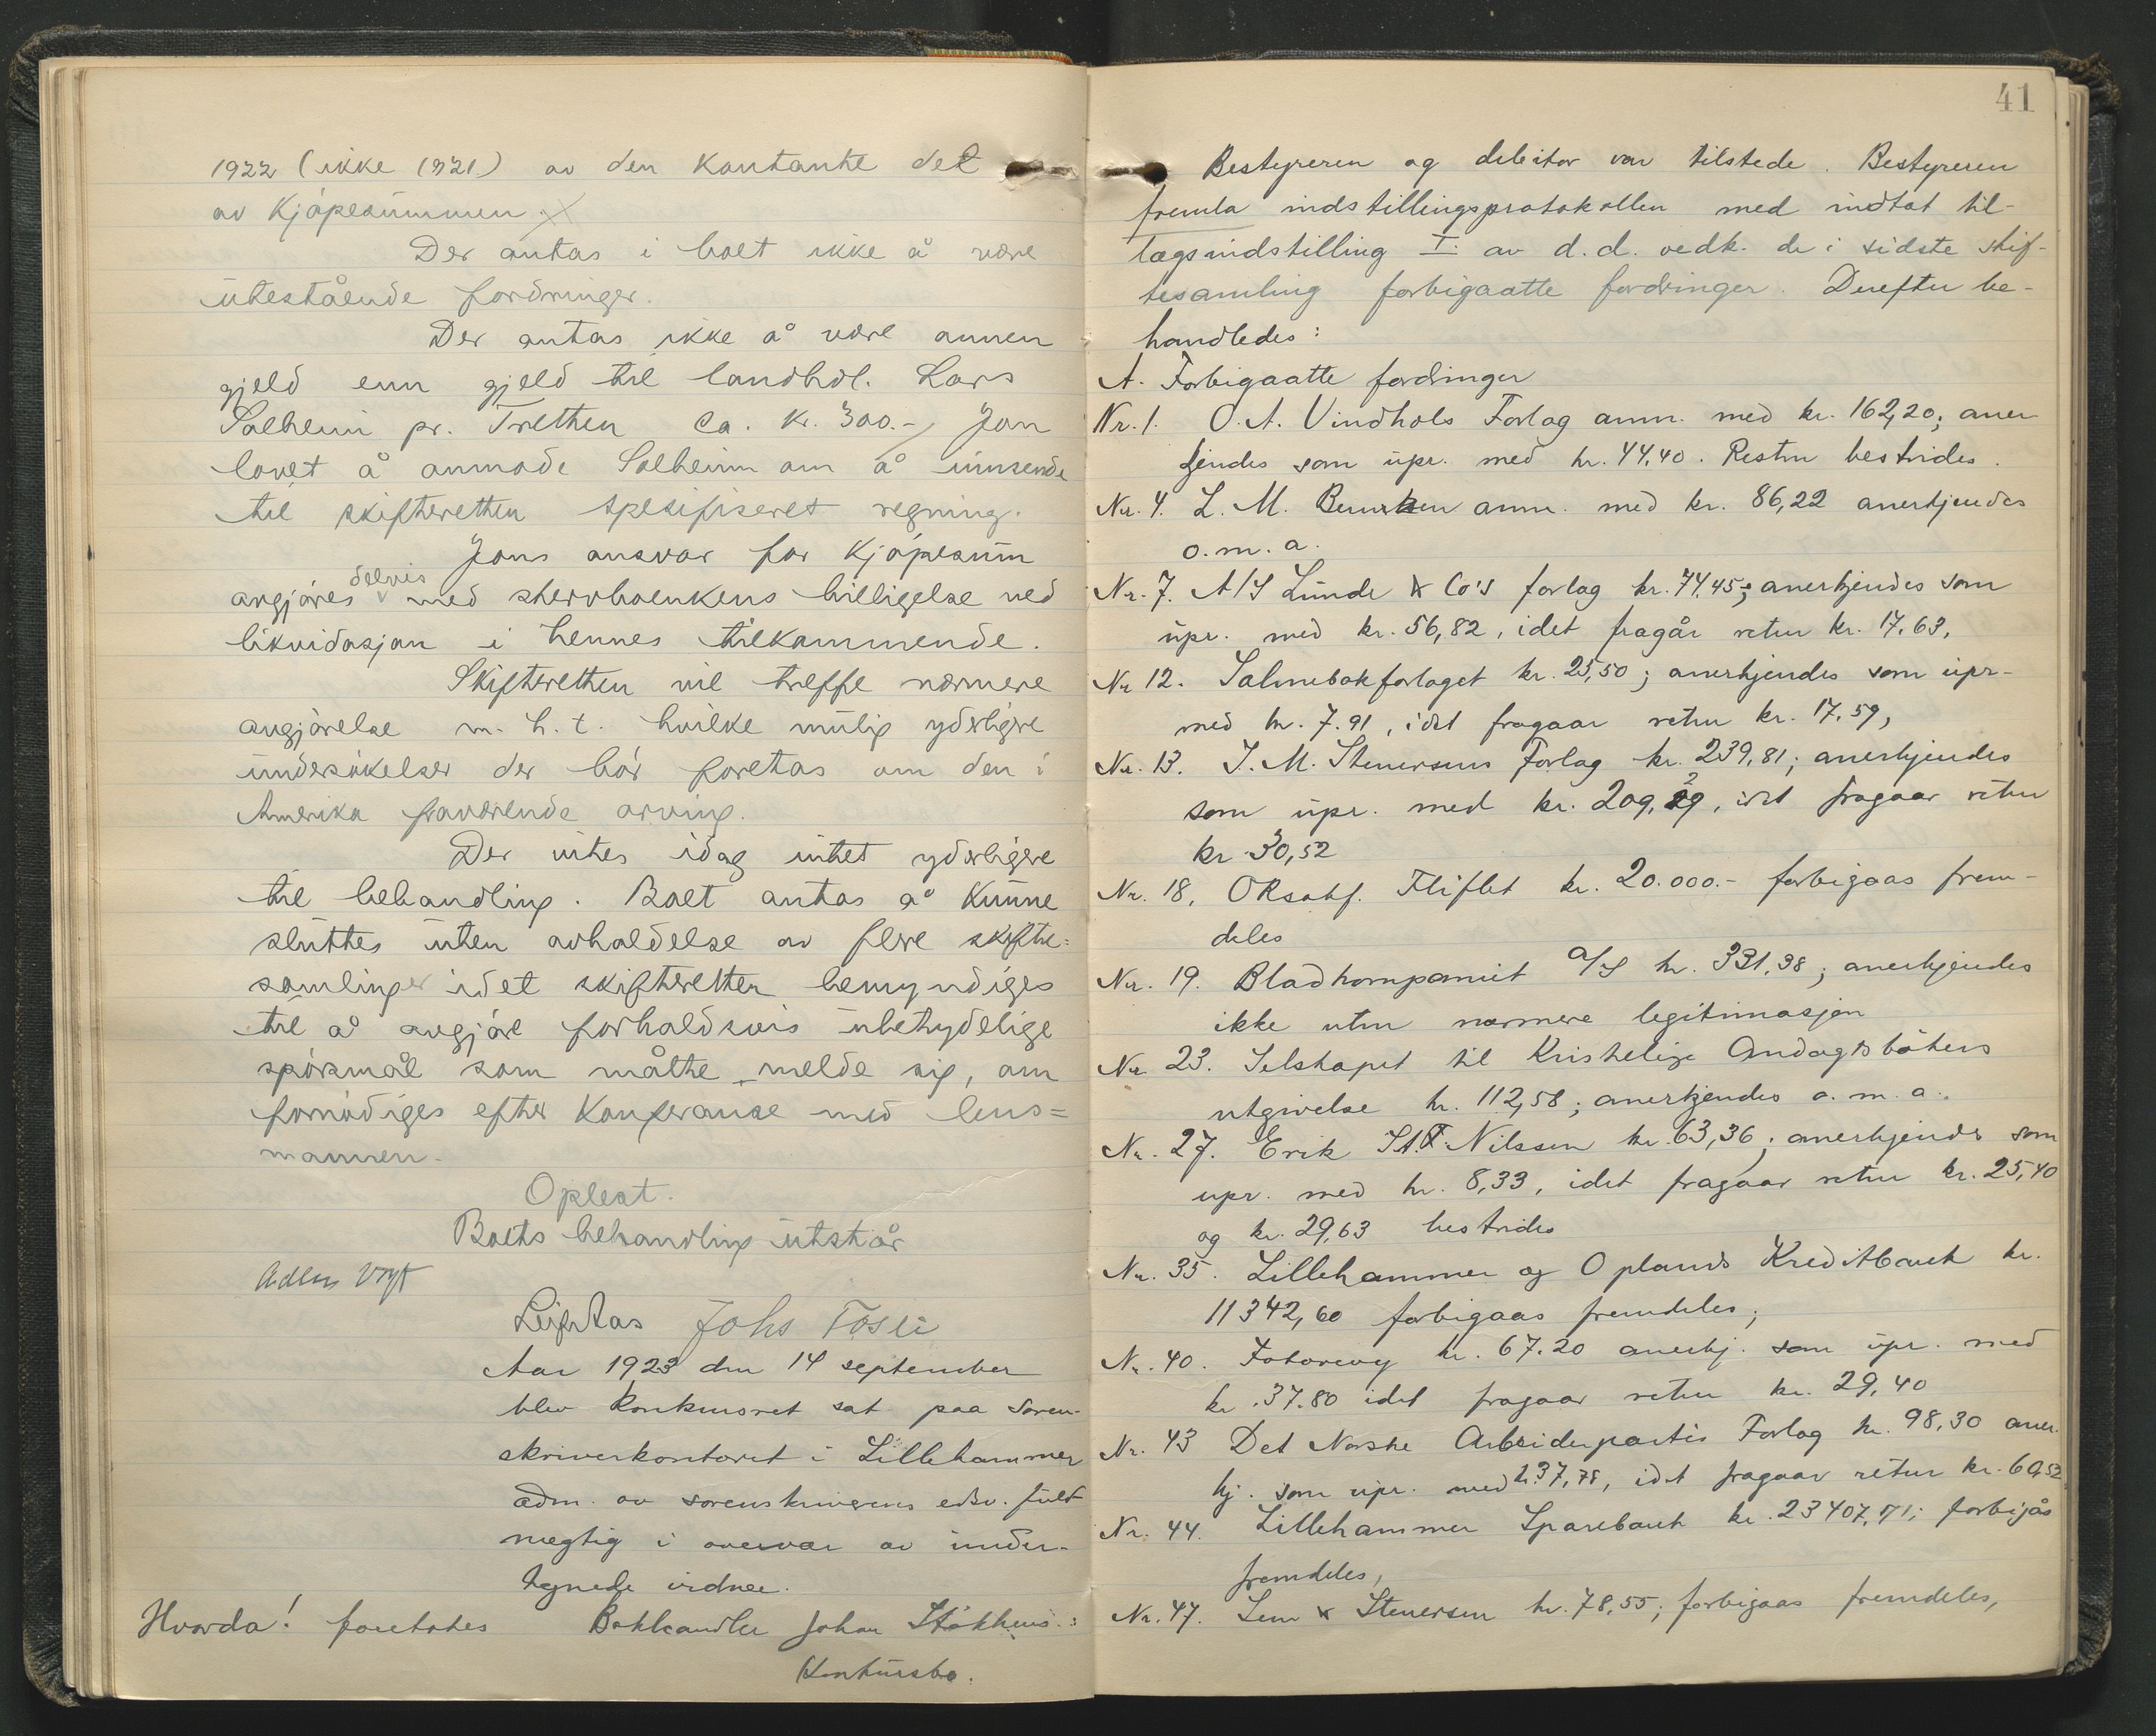 1922 (ikke 1921) av den kontante del
av kjøpesummen.
Der antas i boet ikke å være
utestående fordringer.
Der antas ikke å være annen
gjeld enn gjeld til landhdl. Lars
Solheim pr. Tretten ca. kr. 300.-, Jon
lovet å anmode Solheim om å innsende
til skifteretten spesifiseret regning.
Jons ansvar for kjøpesum
avgjøres delvis med sterboenkens billigelse ved
likvidasjon i hennes tilkommende.
Skifteretten vil treffe nærmere
avgjørelse m. h. t. hvilke mulig yderligere
undersøkelser der bør foretas om den i
Amerika fraværende arving.
Der vites idag intet yderligere
til behandling. Boet antas å kunne
sluttes uten avholdelse av flere skifte=
samlinger idet skifteretten bemyndiges
til å avgjøre forholdsvis ubetydelige
spørsmål som måtte melde sig, om
fornødiges efter konferanse med lens=
mannen.
Oplest.
Boets behandling utstår
Adlers Vogt
Leif Aas Johs Fosli
Aar 1923 den 14 september
blev konkursret sat paa soren-
skriverkontoret i Lillehammer
adm. av sorenskriverens edsv. fuld
mægtig i overvær av under-
tegnede vidner.
Hvorda! foretokes Bokhandler Johan Stokkens:
Konkursbo.
41
Bestyreren og debitor var tilstede. Bestyreren
fremla indstillingsprotokollen med indtat til-
lægsindstilling I av d.d. vedk. de i sidste skif-
tesamling forbigaatte fordringer. Derefter be-
handledes:
A. Forbigaatte fordringer
Nr. 1. O. A. Vindhols Forlag anm. med kr. 162,20; aner
kjendes som upr. med kr. 44,40. Resten bestrides.
Nr. 4. L. M. anm. med kr. 86,22 anerkjendes
o. m. a.
Nr. 7. A/S Lunde & Co's forlag kr. 74,45; anerkjendes som
upr. med kr. 56,82, idet fragår retur kr. 17.63,
Nr 12. Salmebokforlaget kr. 25,50; anerkjendes som upr-
med kr. 7.91, idet fragaar retur kr. 17,59,
Nr. 13. J. M. Stenersens Forlag kr. 239,81; anerkjendes
som upr. med kr. 209,29, idet fragaar retur
kr 30,52
Nr. 18, ORsakf. Fliflet kr. 20.000.- forbigaas frem-
deles
Nr. 19. Bladkompaniet A/S kr. 331,38; anerkjendes
ikke uten nærmere legitimasjon
Nr 23. Selskapet til Kristelige Andagtsbökers
utgivelse kr. 112,58; anerkjendes o. m. a.
Nr. 27. Erik St. Nilssen kr. 63,36; anerkjendes som
upr. med kr. 8,33, idet fragaar retur kr. 25,40
og kr. 29,63 bestrides
Nr. 35. Lillehammer og Oplands Kreditbank kr.
11342,60 forbigaas fremdeles;
Nr. 40. Fotorevy kr. 67.20 anerkj. som upr. med
kr. 37.80 idet fragaar retur kr. 29,40
Nr. 43 Det Norske Arbeiderpartis Forlag kr. 98,30 aner
kj. som upr. med 37,78, idet fragaar retur kr. 60,52
Nr. 44. Lillehammer Sparebank kr. 23407,71; forbigås
fremdeles,
Nr. 47. & Stenersen kr. 78,55; forbigaas fremdeles,